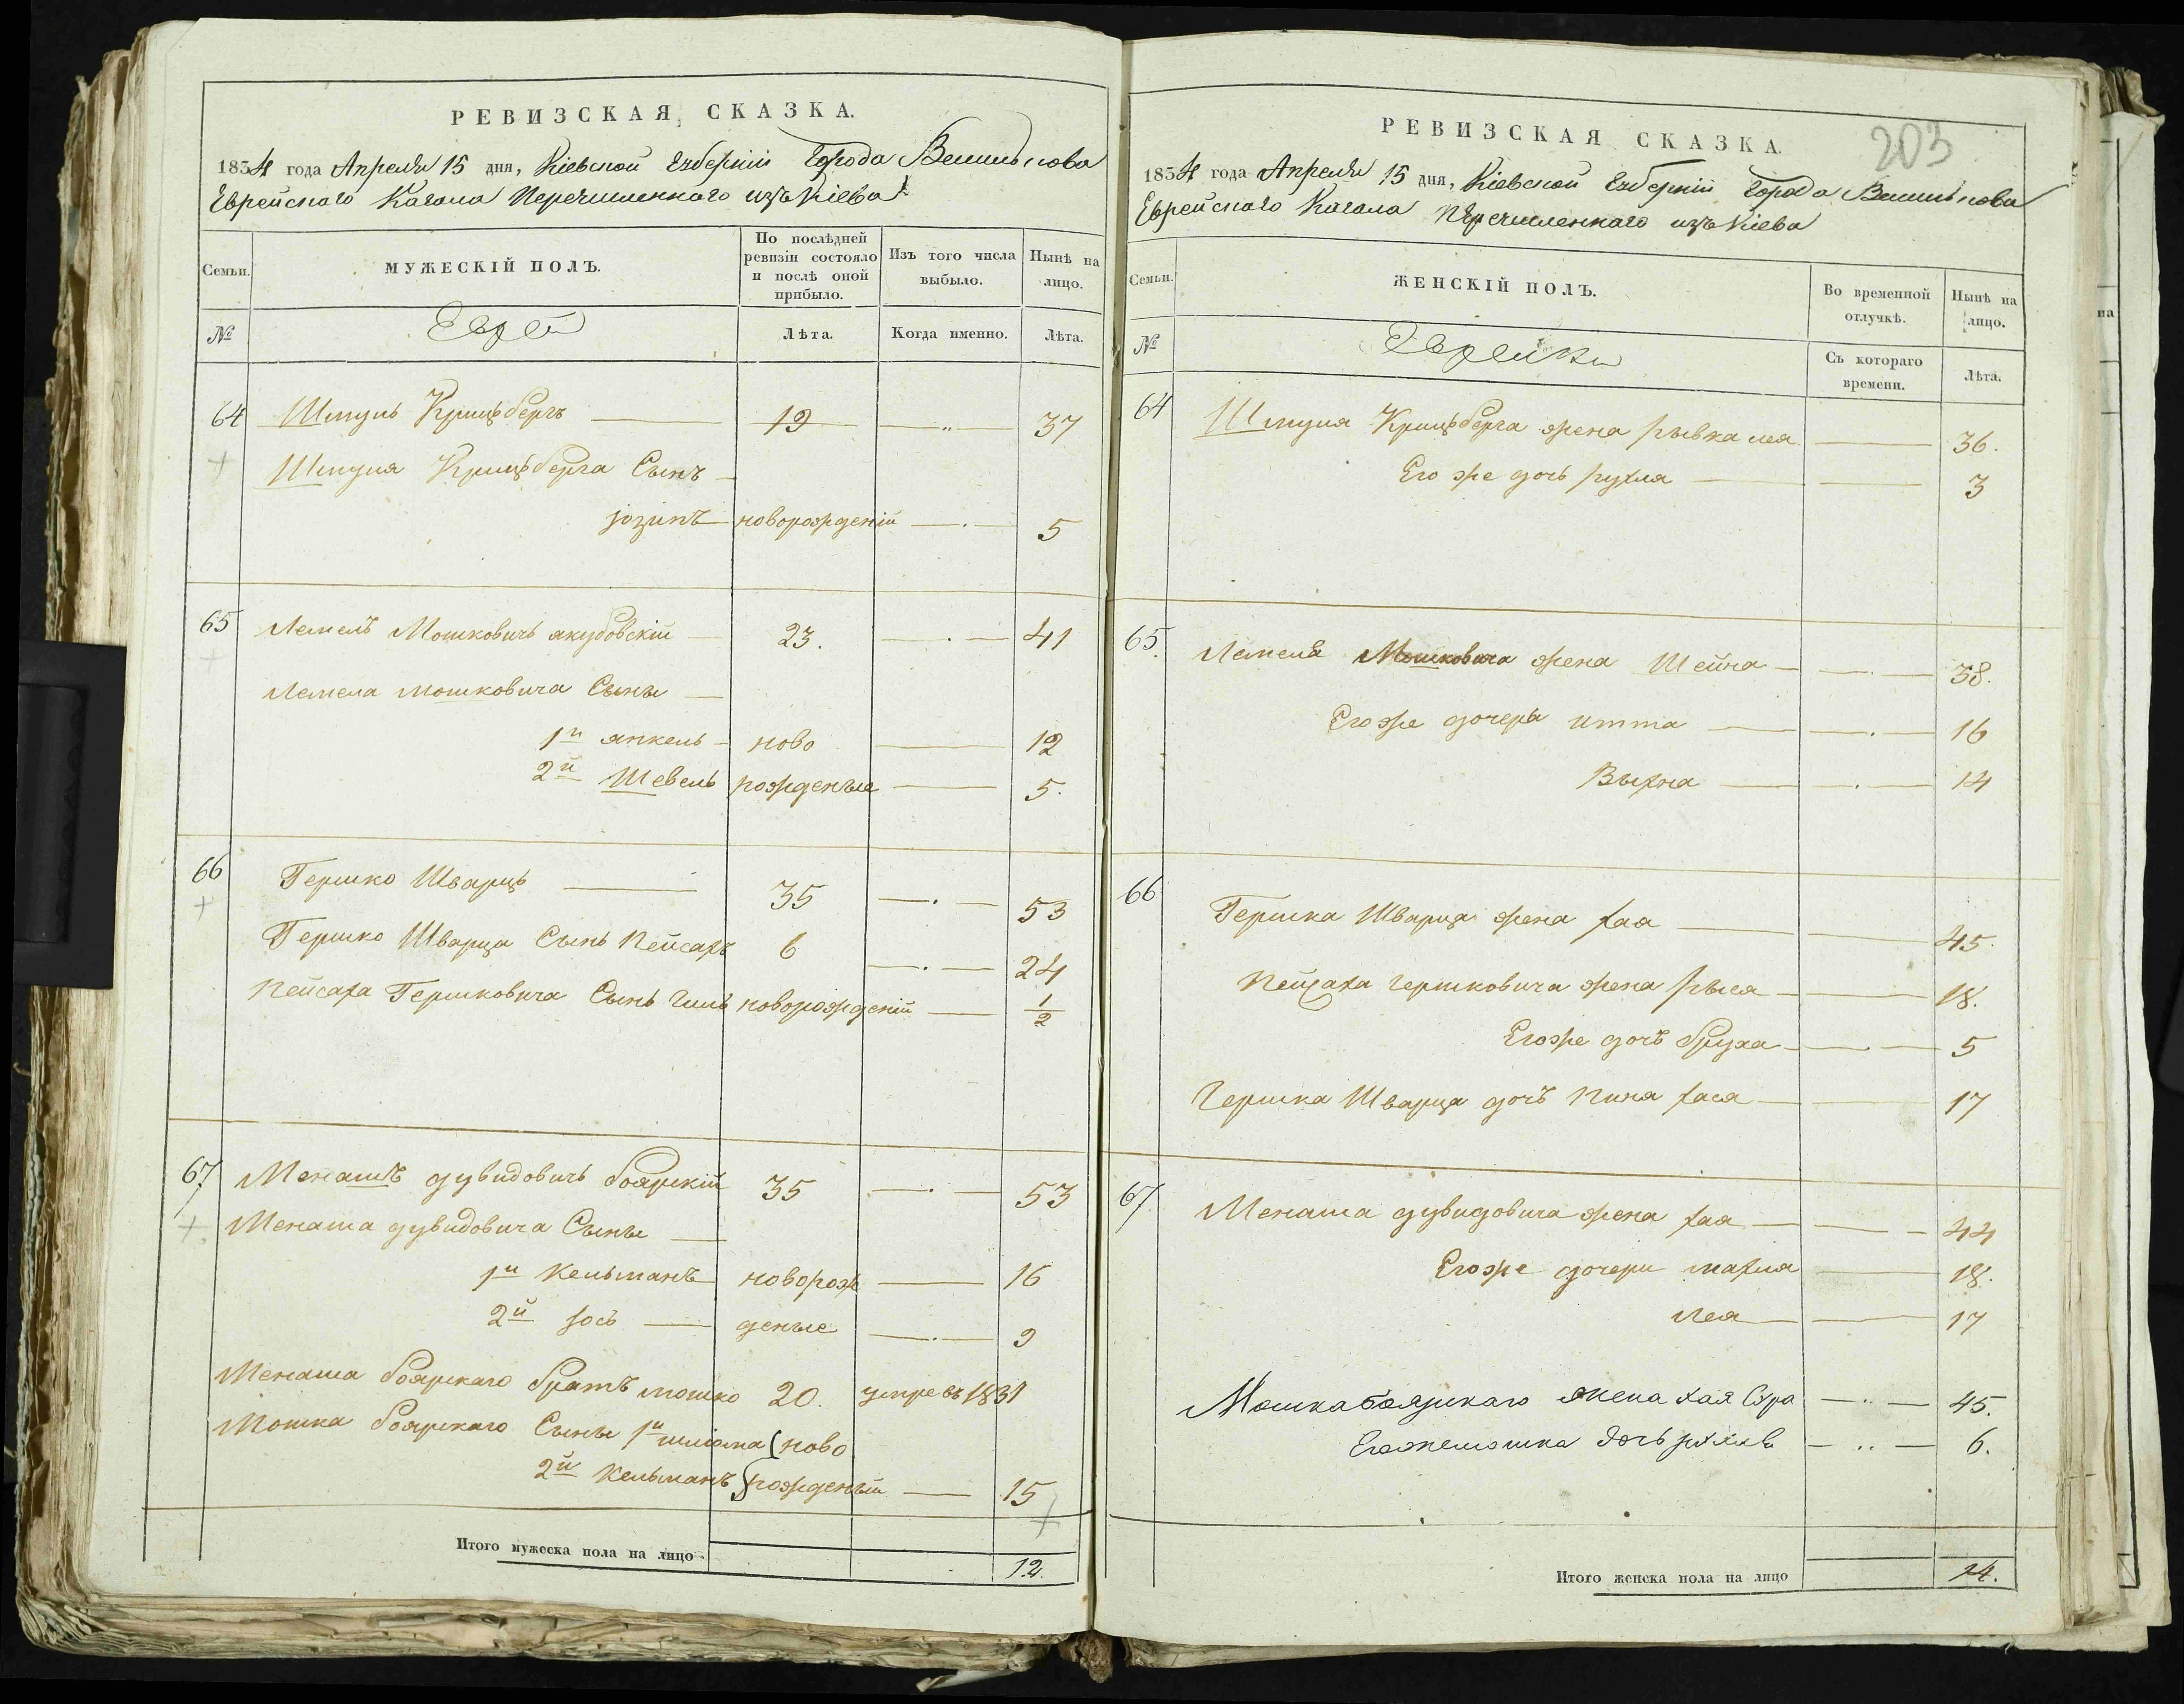 РЕВИЗСКАЯ СКАЗКА.
1834 года Апреля 15 дня, Кіевской Губерніи Города Василькова
Еврейскаго Кагала Перечисленнаго изъ Кіева
Семьи.
МУЖЕСКІЙ ПОЛЪ.
По послѣдней ревизіи состояло и послѣ оной прибыло.
Изъ того числа выбыло.
Нынѣ на лицо.
№
Евреи
Лѣта.
Когда именно.
Лѣта.
64 Шмуль Крицбергъ — 19 — „ — 37
Шмуля Крицберга Сынъ —
іозипъ — новорожденій — . — 5
65 Лемелъ Мошковичь якубовскій — 23. — . — 41
Лемела мошковича Сыны —
1й янкель — ново — 12
2й Шевель рожденые — 5.
66 Гершко Шварцъ — 35 — . — 53
Гершко Шварца Сынъ Пейсахъ 6 — . — 24
Пейсаха Гершковича Сынъ новорожденій — 1/2
67 Менашъ дувидовичь боярскій 35 — . — 53
Менаша дувидовича Сыны —
1й Кельманъ новорож — 16
2й іось — деные — . — 9
Менаша боярскаго братъ мошко 20. умре въ 1831
Мошка боярскаго Сыны 1й шліома ( ново
2й Кельманъ } рожденый — 15
Итого мужеска пола на лицо 12.
203
РЕВИЗСКАЯ СКАЗКА.
1834 года Апреля 15 дня, Кіевской Губерніи Города Василькова
Еврейскаго Кагала Перечисленнаго изъ Кіева
Семьи.
ЖЕНСКІЙ ПОЛЪ.
Во временной отлучкѣ.
Нынѣ на лицо.
№
Еврейки
Съ котораго времени.
Лѣта.
64 Шмуля Крицберга жена рывка лея — 36.
Его же дочь рухля — — 3
65. Лемела Мошковича жена Шейна — — . — 38.
Его же дочеры итта — — . — 16
Выхна — — . — 14
66 Гершка Шварца жена хая — — 45.
Пейсаха гершковича жена рыся — — 18.
Егоже дочъ бруха — — . — 5
Гершка Шварца дочъ Пина хася — — 17
67 Менаша дувидовича жена хая — — 44
Егоже дочери махля — 18.
лея — — 17
Мошка боярскаго жена хая Сура — .. — 45.
Егоже мошка дочь — .. — 6.
Итого женска пола на лицо 14.